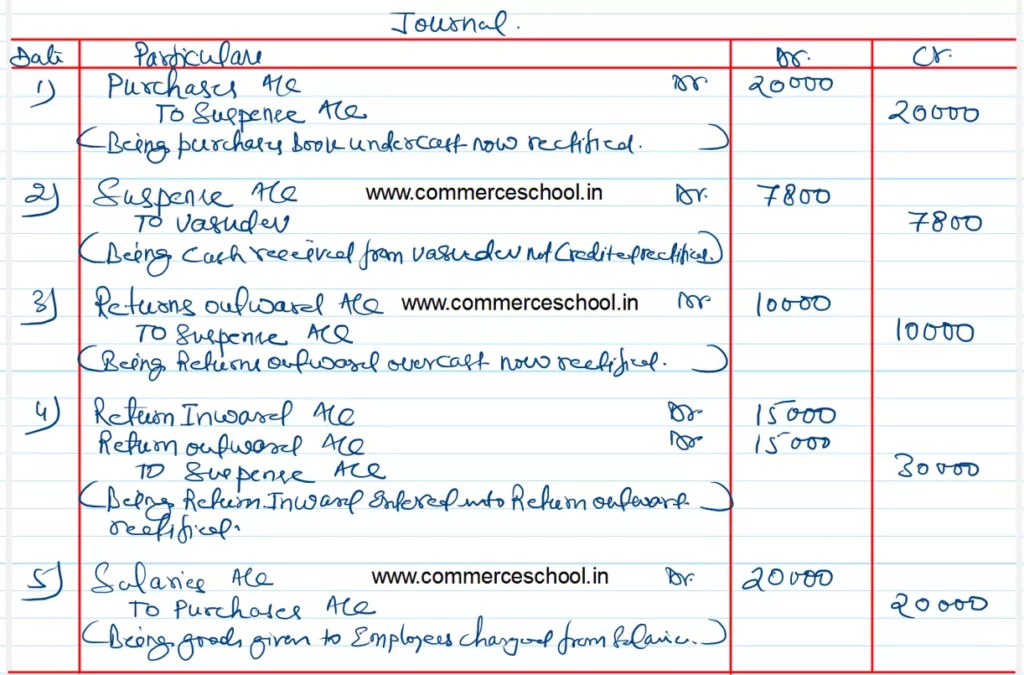 Journal.
Date Particulars Dr. Cr.
1) Purchases A/C Dr 20000
To Suspense A/C 20000
(Being purchases book undercast now rectified.)
2) Suspense A/C www.commerceschool.in Dr. 7800
To Vasudev 7800
(Being Cash received from Vasudev not Credited rectified.)
3) Returns outward A/C www.commerceschool.in Dr 10000
To Suspense A/C 10000
(Being Returns outward overcast now rectified.)
4) Return Inward A/C Dr 15000
Return outward A/C Dr 15000
To Suspense A/C 30000
(Being Return Inward Entered into Return outward)
rectified.
5) Salaries A/C www.commerceschool.in Dr. 20000
To Purchases A/C 20000
(Being goods given to Employees charged from Salarie.)